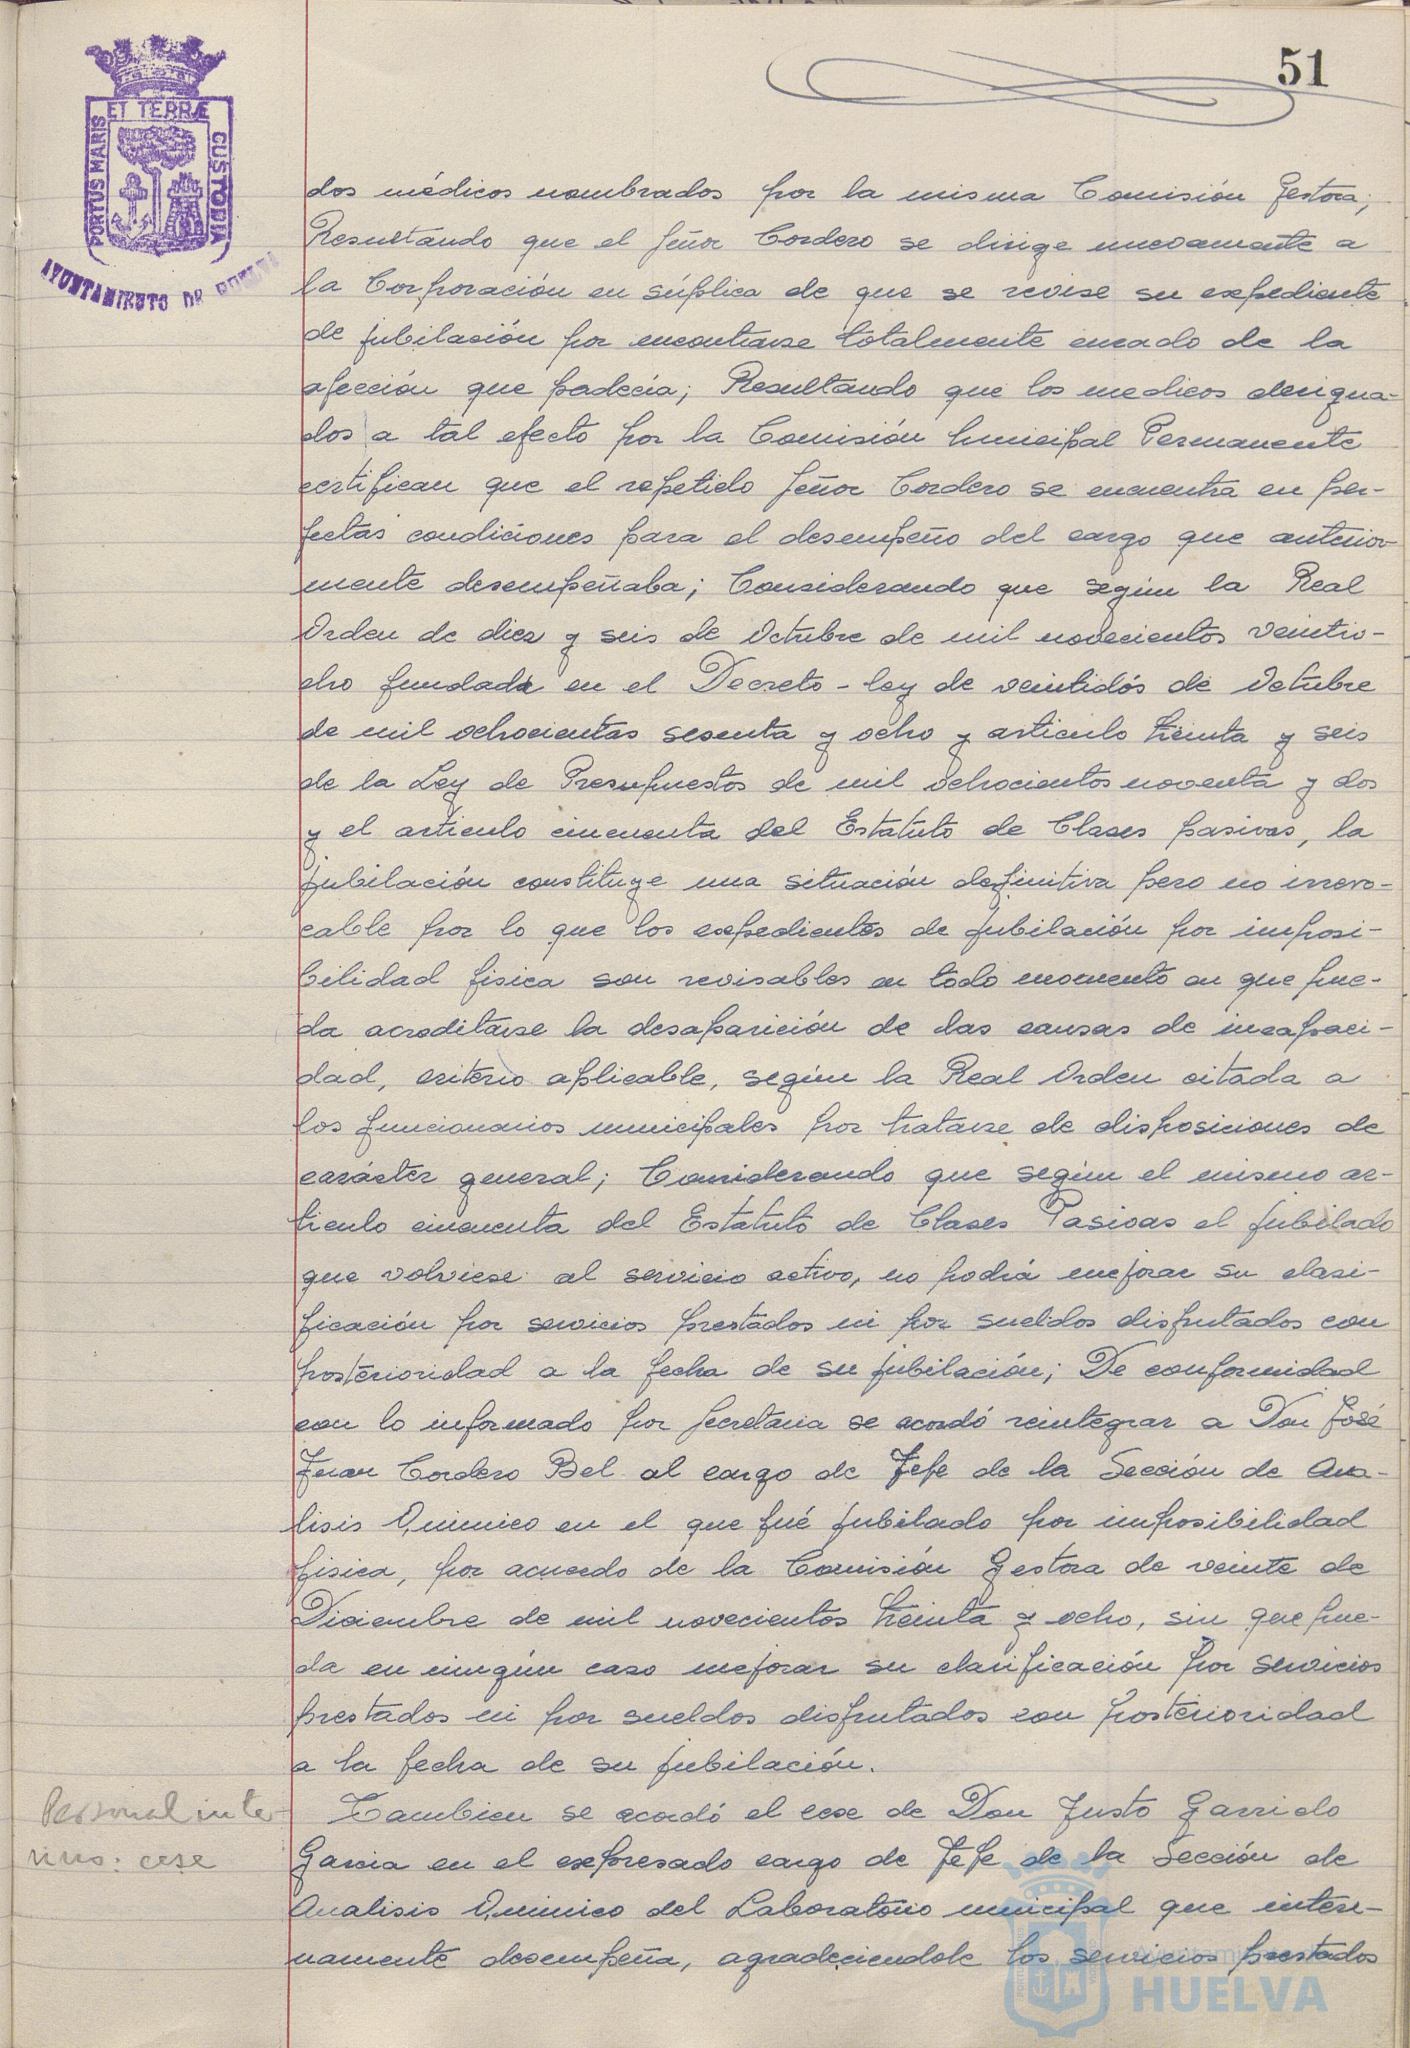 51
ET TERRÆ
PORTUS MARIS
CUSTODIA
AYUNTAMIENTO DE HUELVA
dos médicos nombrados por la misma Comisión Gestora;
Resultando que el Señor Cordero se dirige nuevamente a
la Corporación en súplica de que se revise su expediente
de jubilación por encontrarse totalmente curado de la
afección que padecía; Resultando que los medicos designa-
dos a tal efecto por la Comisión Municipal Permanente
certifican que el repetido Señor Cordero se encuentra en per-
fectas condiciones para el desempeño del cargo que anterior
mente desempeñaba; Considerando que según la Real
Orden de diez y seis de Octubre de mil novecientos veintio-
cho fundada en el Decreto-ley de veintidós de Octubre
de mil ochocientos sesenta y ocho y articulo treinta y seis
de la Ley de Presupuestos de mil ochocientos noventa y dos
y el articulo cincuenta del Estatuto de Clases pasivas, la
jubilación constituye una situación definitiva pero no irrevo-
cable por lo que los expedientes de jubilación por imposi-
bilidad fisica son revisables en todo momento en que pue-
da acreditarse la desaparición de las causas de incapaci-
dad, criterio aplicable, según la Real Orden citada a
los funcionarios municipales por tratarse de disposiciones de
carácter general; Considerando que según el mismo ar-
tículo cincuenta del Estatuto de Clases Pasivas el jubilado
que volviese al servicio activo, no podrá mejorar su clasi-
ficación por servicios prestados ni por sueldos disfrutados con
posterioridad a la fecha de su jubilación; De conformidad
con lo informado por Secretaria se acordó reintegrar a Don José
Juan Cordero Bel al cargo de Jefe de la Sección de Aná-
lisis Químico en el que fué jubilado por imposibilidad
fisica, por acuerdo de la Comisión Gestora de veinte de
Diciembre de mil novecientos treinta y ocho, sin que pue-
da en ningún caso mejorar su clasificación por servicios
prestados ni por sueldos disfrutados con posterioridad
a la fecha de su jubilación.
Personal inte-
rino: cese
Tambien se acordó el cese de Don Justo Garrido
Garcia en el expresado cargo de Jefe de la Sección de
Analisis Quimico del Laboratorio municipal que interi-
namente desempeña, agradeciendole los servicios prestados
HUELVA